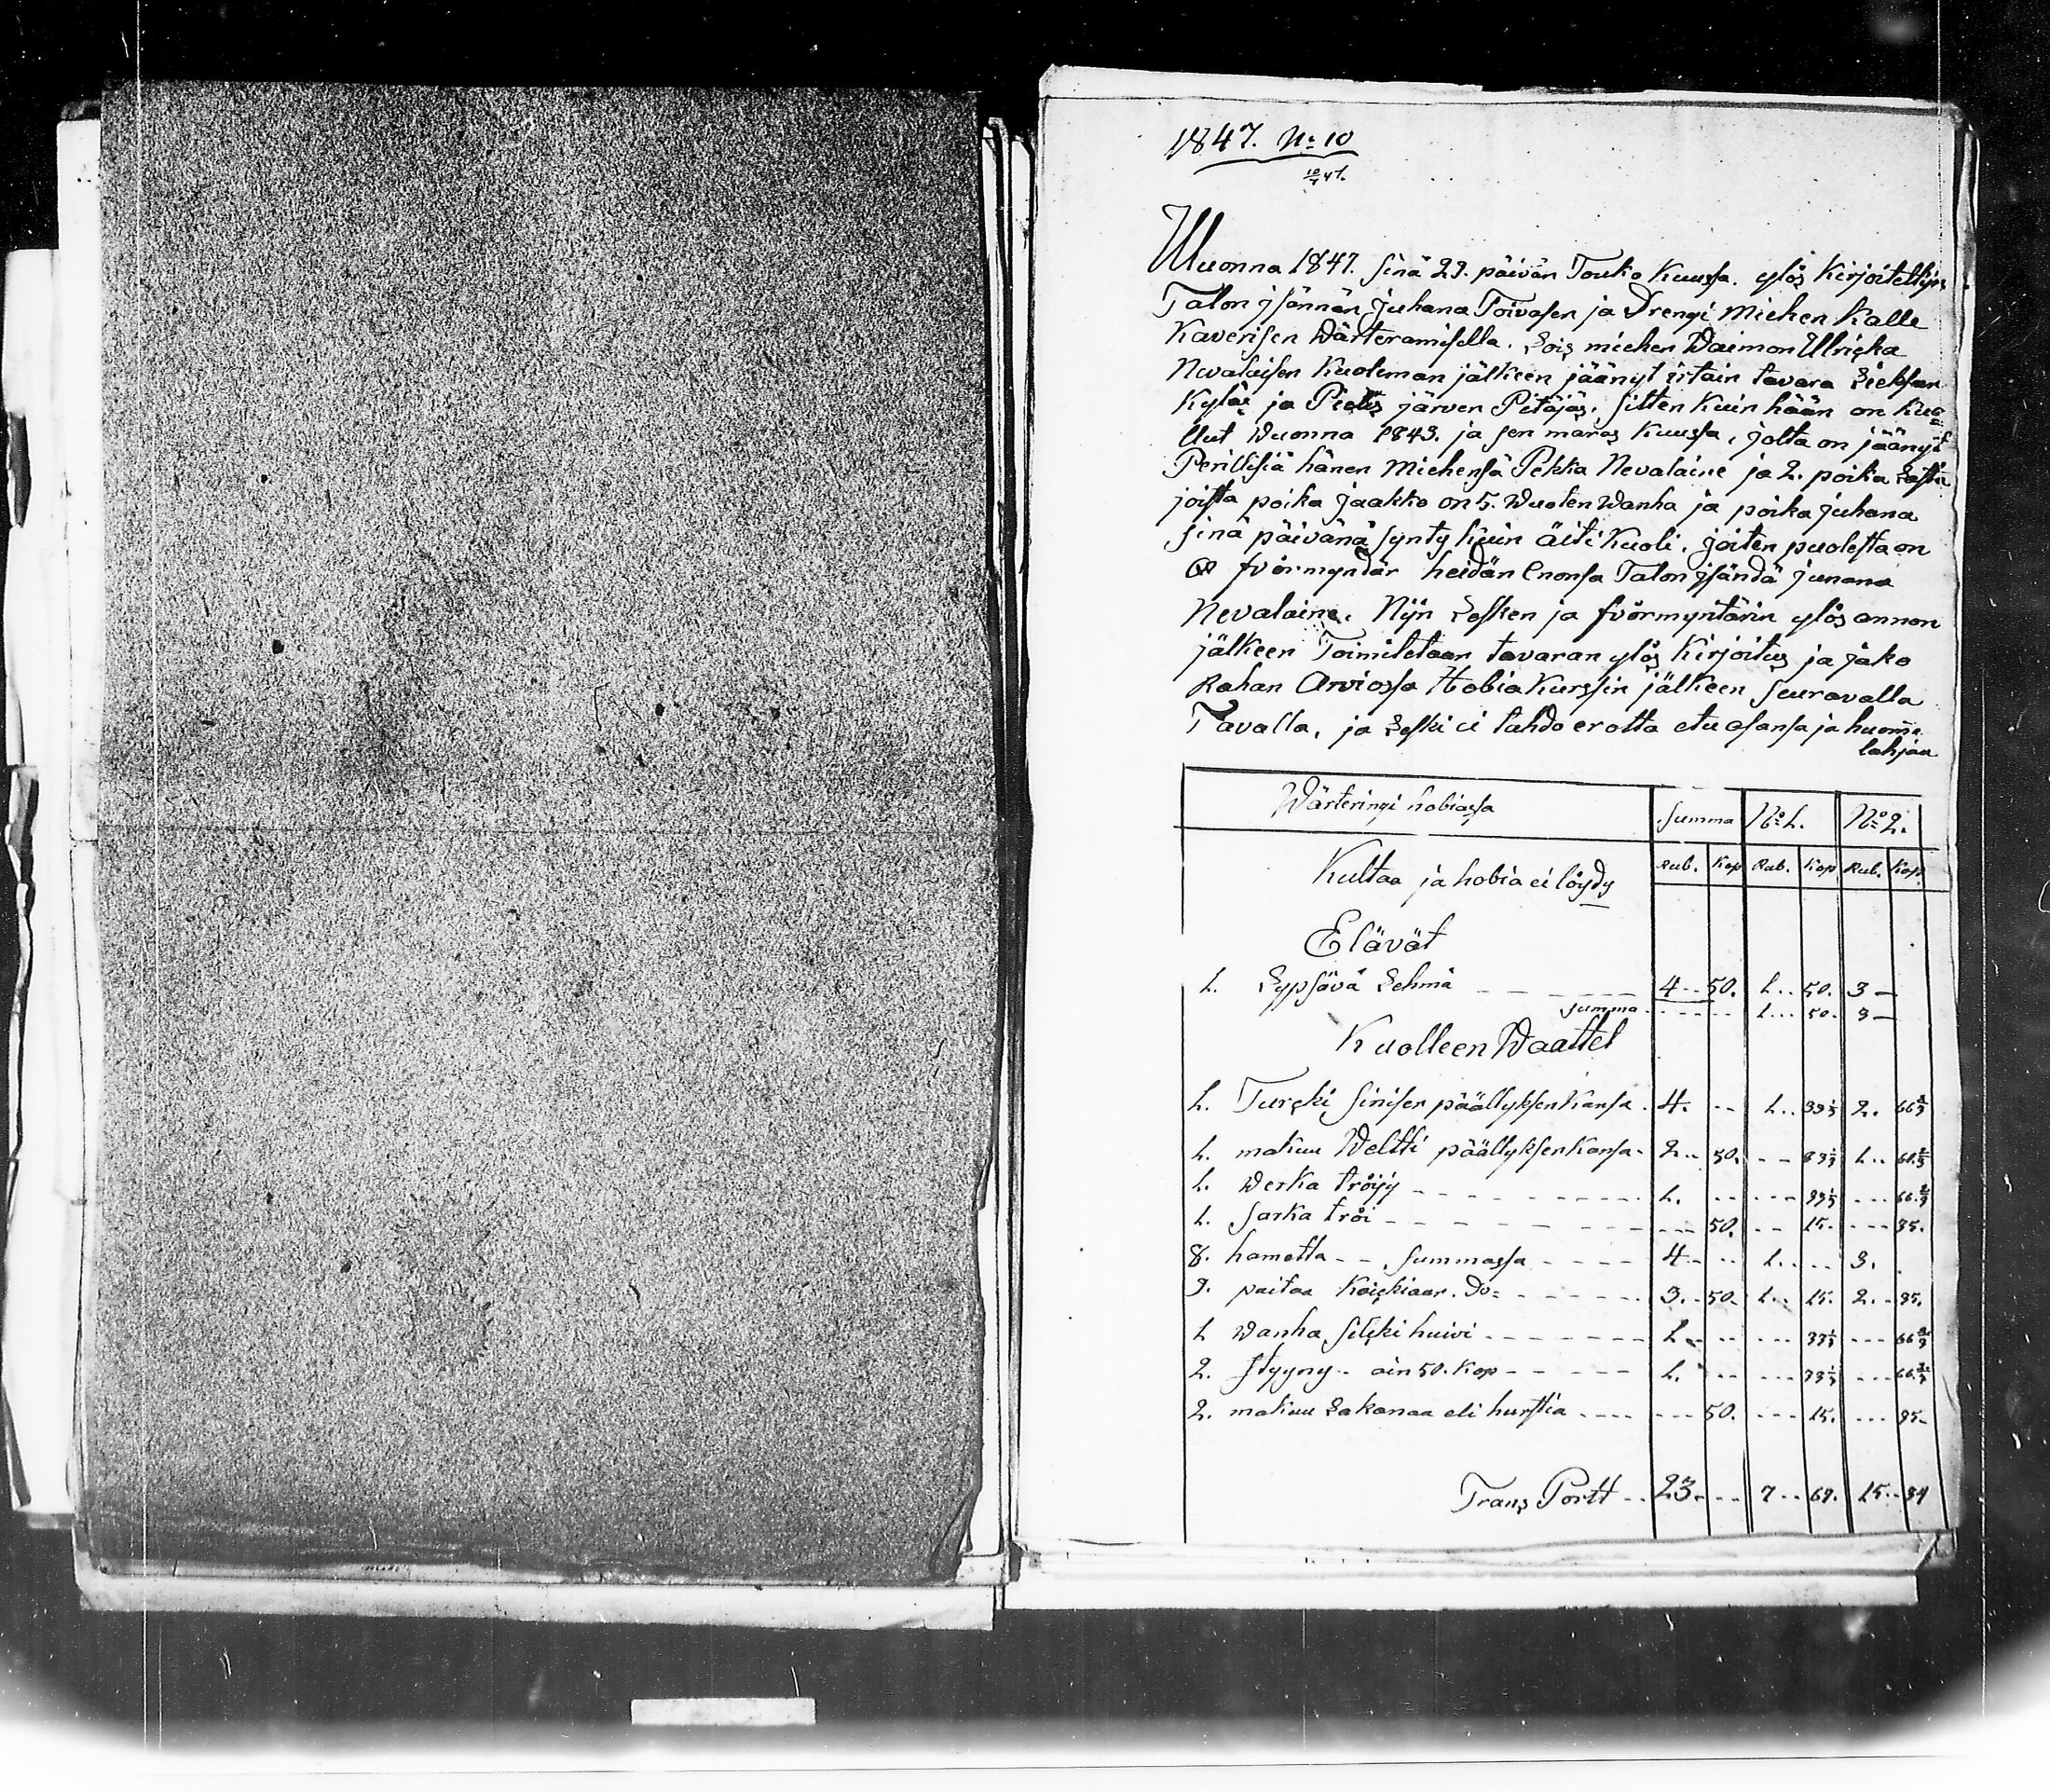 1847. No 10
10/7 47.
Wuonna 1847. sinä 29. päivän Touko Kuussa. ylös Kirjoitettijn
Talon jsännän Juhana Toivasen ja Drengi Miehen Kalle
Kaverisen Wärteramisella. Lois miehen Waimon Ulriska
Nevalaisen Kuoleman jälkeen jäänyt irtain tavara Lieksan
Kyläs ja Pielis järven Pitäjäs. sitten kuin hään on Kuo=
llut Wuonna 1843. ja sen maras Kuussa, jolta on jäänyt
Perillisiä hänen Miehensä Pekka Nevalaine ja 2. poika Lasta
joista poika Jaakko on 5. Wuoten Wanha ja poika Juhana
sinä päivänä synty kuin äiti Kuoli. joiten puolesta on
fvörmyndär heidän Enonsa Talon jsändä Juhana
Nevalaine. Nijn Lesken ja fvörmyntärin ylös annon
jälkeen Toimitetaan tavaran ylös Kirjoitus ja jako
Rahan Arviossa Hobia Kurssin jälkeen seuravalla
Tavalla, ja Leski ei tahdo erotta etu osansa ja huome
lahjaa
Wärteringi hobiassa Summa No 1. No 2.
Rub. Kop Rub. Kop Rub. Kop.
Kultaa ja hobia ei löydy
Elävät
1. Lypsävä Lehmä 4 -- 50. 1 .. 50. 3 —
summa 1 ... 50. 3 —
Kuolleen Waattet
1. Turski sinisen päällyksen kansa. 4. -- 1 .. 33 1/3 2. 66 2/3
1. makuu Weltti päällyksen kansa. 2 .. 50. -- 83 1/3 1 .. 66 2/3
1. Werka tröijy 1. -- 33 1/3 ... 66 2/3
1. sarka tröi 50. -- 15. --- 35.
8. hametta - - summassa 4 -- 1 .... 3.
9. paitaa Koiskiaar. Do: 3. 50. 1 .. 15. 2 .. 35.
1 Wanha silski huivi 1 -- ... 33 1/3 ... 66 2/3
2. styyny - ain 50. Kop 1. -- ... 33 1/3 ... 66 2/3
2. makuu Lakanaa eli hurstia 50. --- 15. ... 35.
Trans Portt .. 23. -- 7 -- 69. 15 .. 34